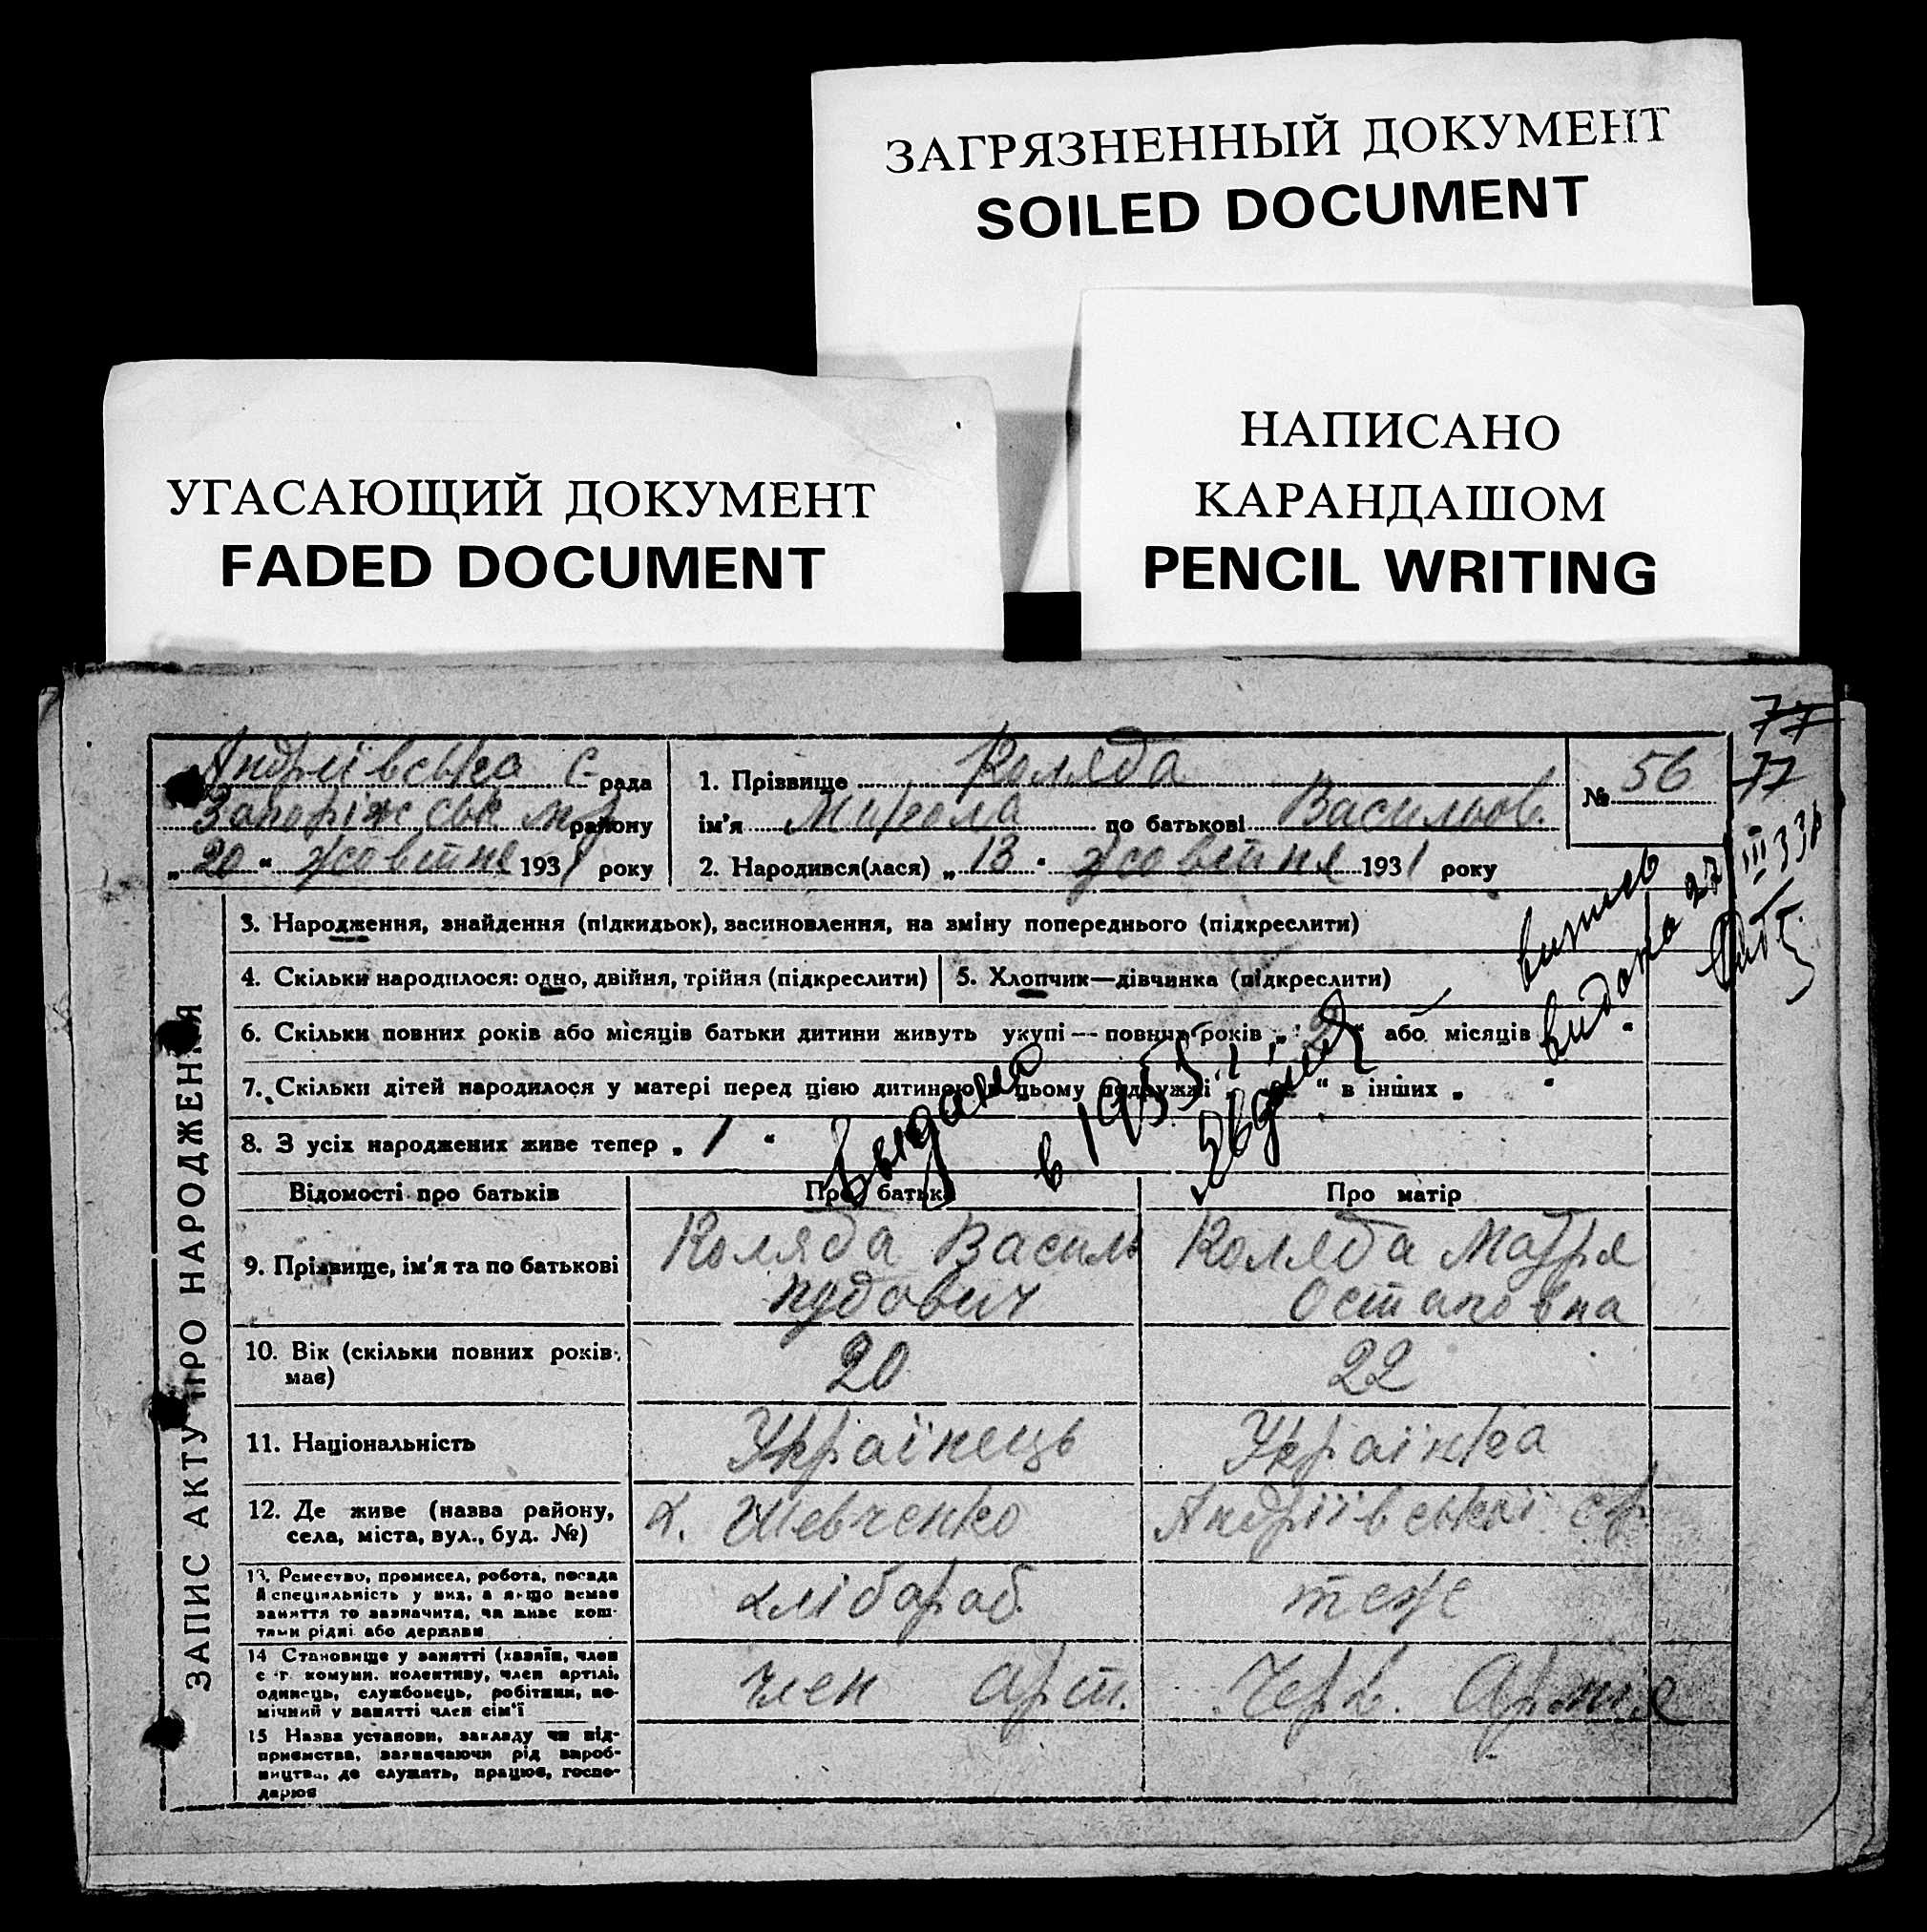 ЗАГРЯЗНЕННЫЙ ДОКУМЕНТ
SOILED DOCUMENT
НАПИСАНО
КАРАНДАШОМ
PENCIL WRITING
УГАСАЮЩИЙ ДОКУМЕНТ
FADED DOCUMENT
77
77
Андріївська с. рада
Запоріжськ району
„20“ жовтня 1931 року
1. Прізвище Коляда
ім'я Микола по батькові Васильов.
2. Народився(лася) „13“ жовтня 1931 року
№ 56
ЗАПИС АКТУ ПРО НАРОДЖЕННЯ
3. Народження, знайдення (підкидьок), засиновлення, на зміну попереднього (підкреслити)
4. Скільки народилося: одно, двійня, трійня (підкреслити)
5. Хлопчик—дівчинка (підкреслити)
6. Скільки повних років або місяців батьки дитини живуть укупі — повних років „2“ або місяців „ “
7. Скільки дітей народилося у матері перед цією дитиною в цьому подружжі „ “ в інших „ “
8. З усіх народжених живе тепер „1“
видано 27 III 33р
в 1953
Відомості про батьків
Про батька
Про матір
9. Прізвище, ім'я та по батькові
Коляда Василь
Коляда Мотря
Остаповна
10. Вік (скільки повних років має)
20
22
11. Національність
Українець
Українка
12. Де живе (назва району,
села, міста, вул., буд. №)
х. Шевченко
Андріївської с/р
13. Ремество, промисел, робота, посада
й спеціяльність у них, а якщо немає
заняття то зазначити, чи живе кош-
тами рідні або держави
хлібороб.
теж
14 Становище у занятті (хазяїн, член
с.-г. комуни, колективу, член артілі,
одинець, службовець, робітник, по-
мічний у занятті член сім'ї
член арт.
Черв. Армія
15 Назва установи, закладу чи під-
приємства, зазначаючи рід вироб-
ництва, де служить, працює, госпо-
дарює